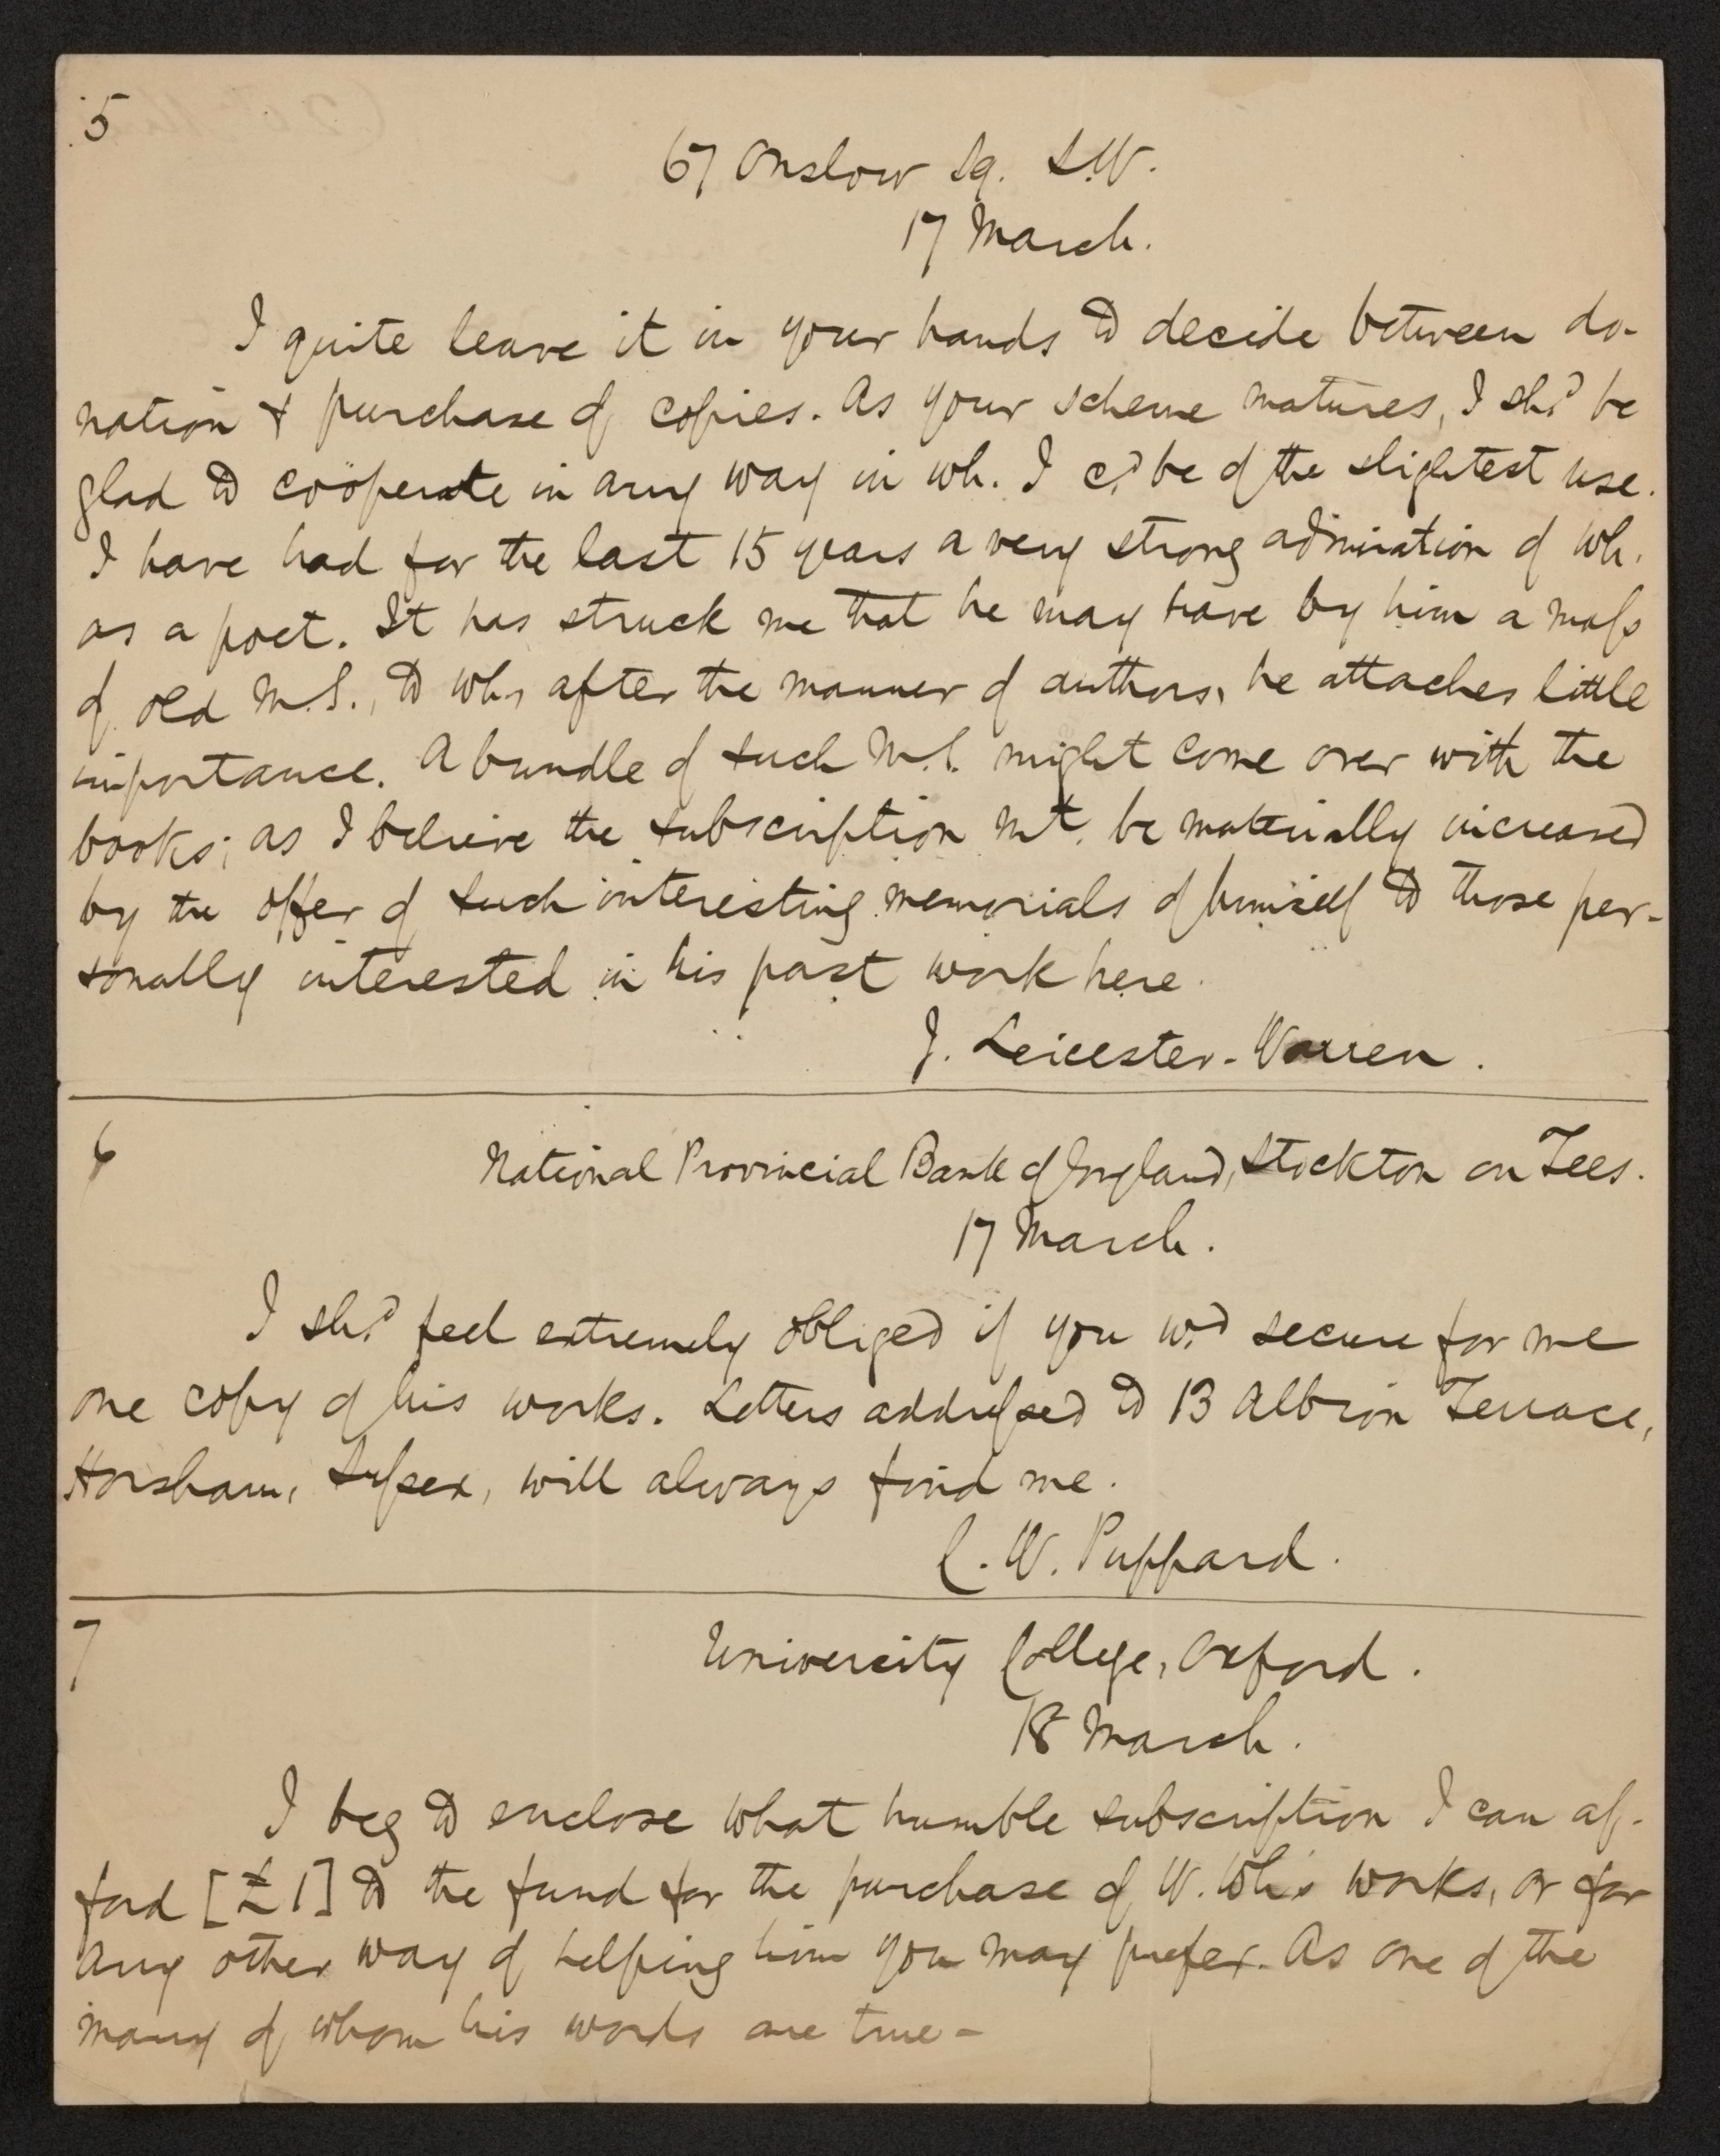 5
67 Onslow Sq. S.W.
17 March.
I quite leave it in your hands to decide between do-
nation & purchase of copies. As your scheme matures, I shd. be
glad to coöperate in any way in wh. I cd. be of the slightest use.
I have had for the last 15 years a very strong admiration of Wh.
as a poet. It has struck me that he may have by him a mass
of old M.S., to wh, after the manner of authors, he attaches little
importance. A bundle of such M.S. might come over with the
books; as I believe the subscription mt. be materially increased
by the offer of such interesting memorials of himself to those per-
sonally interested in his past work here.
J. Leicester-Warren.
6
National Provincial Bank of England, Stockton on Tees.
17 March.
I shd. feel extremely obliged if you wd. secure for me
one copy of his works. Letters addressed to 13 Albion Terrace,
Horsham, Sussex, will always find me.
C. W. Puppard.
7
University College, Oxford.
18 March.
I beg to enclose what humble subscription I can af-
ford [£1] to the fund for the purchase of W. Wh's works, or for
any other way of helping him you may prefer. As one of the
many of whom his words are true-